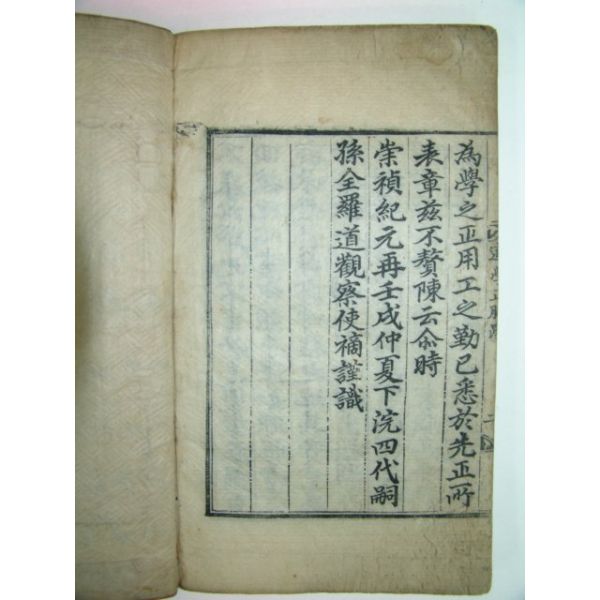 為學之正用工之勤已悉於先正所
表章玆不贅陳云爾時
崇禎紀元再壬戌仲夏下浣四代嗣
孫全羅道觀察使𥛚謹識